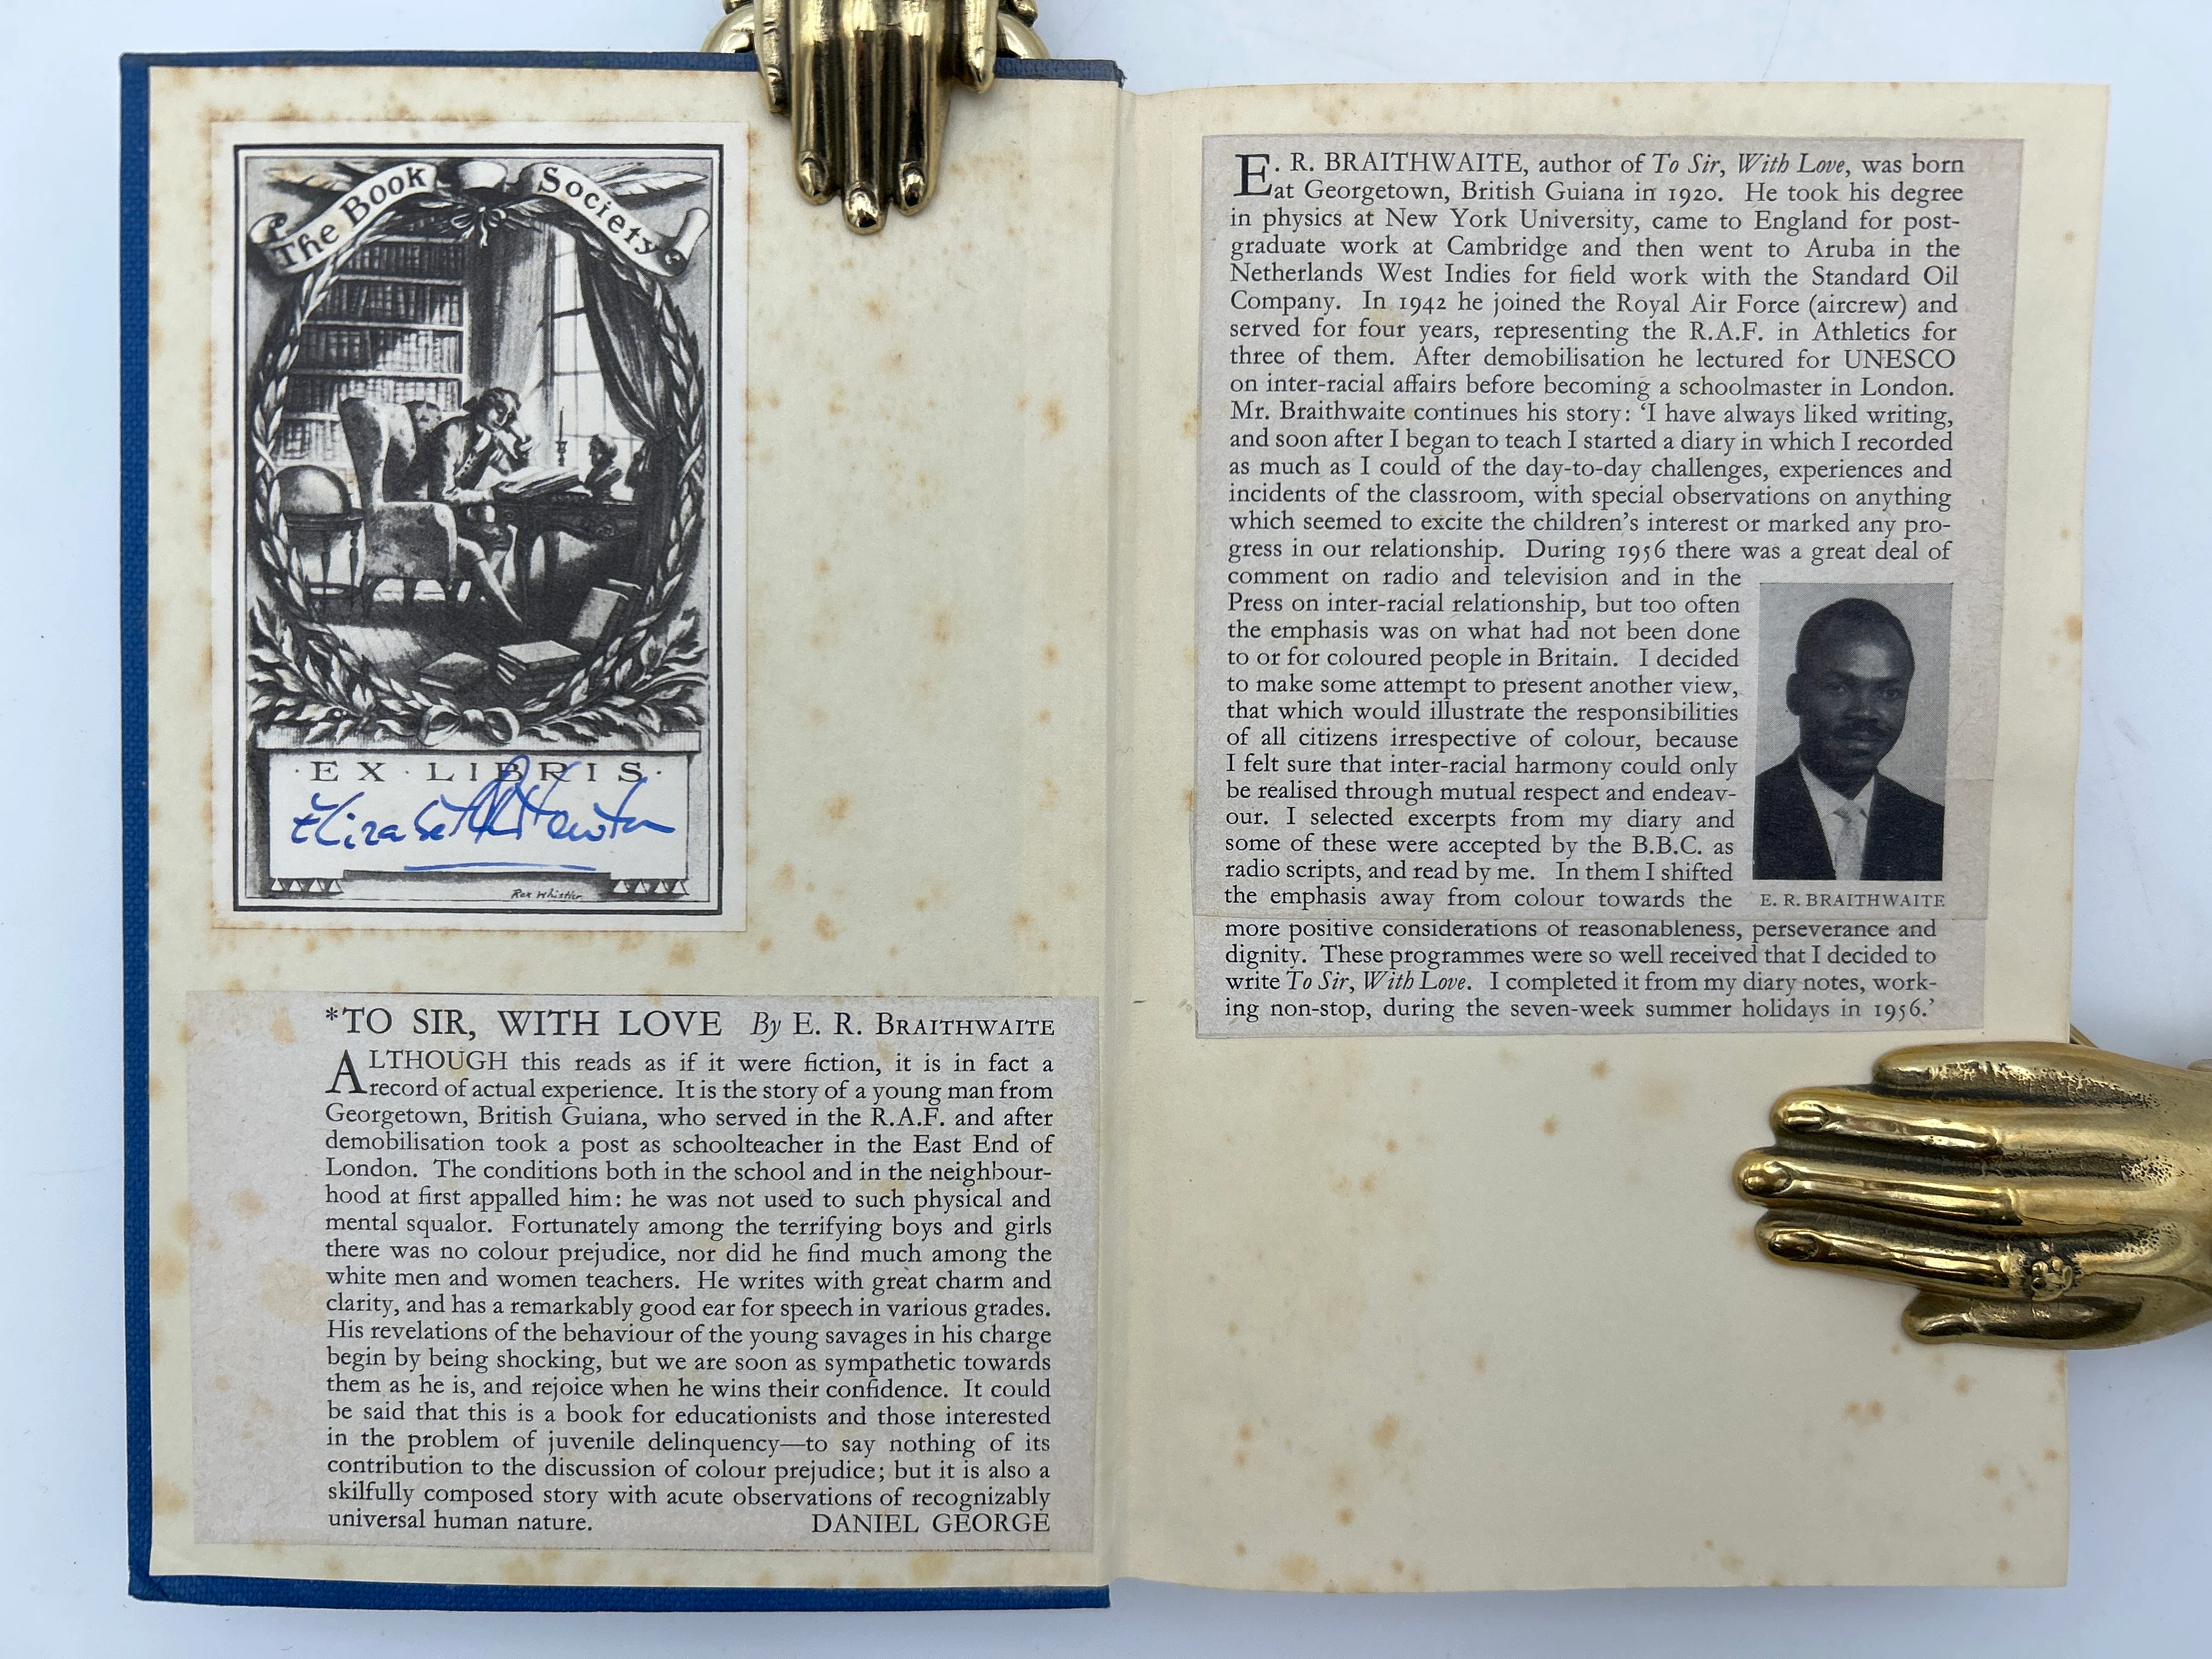 The Book Society
·EX·LIBRIS·
Elizabeth
Rex Whistler
*TO SIR, WITH LOVE By E. R. BRAITHWAITE
ALTHOUGH this reads as if it were fiction, it is in fact a
record of actual experience. It is the story of a young man from
Georgetown, British Guiana, who served in the R.A.F. and after
demobilisation took a post as schoolteacher in the East End of
London. The conditions both in the school and in the neighbour-
hood at first appalled him: he was not used to such physical and
mental squalor. Fortunately among the terrifying boys and girls
there was no colour prejudice, nor did he find much among the
white men and women teachers. He writes with great charm and
clarity, and has a remarkably good ear for speech in various grades.
His revelations of the behaviour of the young savages in his charge
begin by being shocking, but we are soon as sympathetic towards
them as he is, and rejoice when he wins their confidence. It could
be said that this is a book for educationists and those interested
in the problem of juvenile delinquency—to say nothing of its
contribution to the discussion of colour prejudice; but it is also a
skilfully composed story with acute observations of recognizably
universal human nature. DANIEL GEORGE
E. R. BRAITHWAITE, author of To Sir, With Love, was born
at Georgetown, British Guiana in 1920. He took his degree
in physics at New York University, came to England for post-
graduate work at Cambridge and then went to Aruba in the
Netherlands West Indies for field work with the Standard Oil
Company. In 1942 he joined the Royal Air Force (aircrew) and
served for four years, representing the R.A.F. in Athletics for
three of them. After demobilisation he lectured for UNESCO
on inter-racial affairs before becoming a schoolmaster in London.
Mr. Braithwaite continues his story: ‘I have always liked writing,
and soon after I began to teach I started a diary in which I recorded
as much as I could of the day-to-day challenges, experiences and
incidents of the classroom, with special observations on anything
which seemed to excite the children’s interest or marked any pro-
gress in our relationship. During 1956 there was a great deal of
comment on radio and television and in the
Press on inter-racial relationship, but too often
the emphasis was on what had not been done
to or for coloured people in Britain. I decided
to make some attempt to present another view,
that which would illustrate the responsibilities
of all citizens irrespective of colour, because
I felt sure that inter-racial harmony could only
be realised through mutual respect and endeav-
our. I selected excerpts from my diary and
some of these were accepted by the B.B.C. as
radio scripts, and read by me. In them I shifted
the emphasis away from colour towards the
E. R. BRAITHWAITE
more positive considerations of reasonableness, perseverance and
dignity. These programmes were so well received that I decided to
write To Sir, With Love. I completed it from my diary notes, work-
ing non-stop, during the seven-week summer holidays in 1956.’